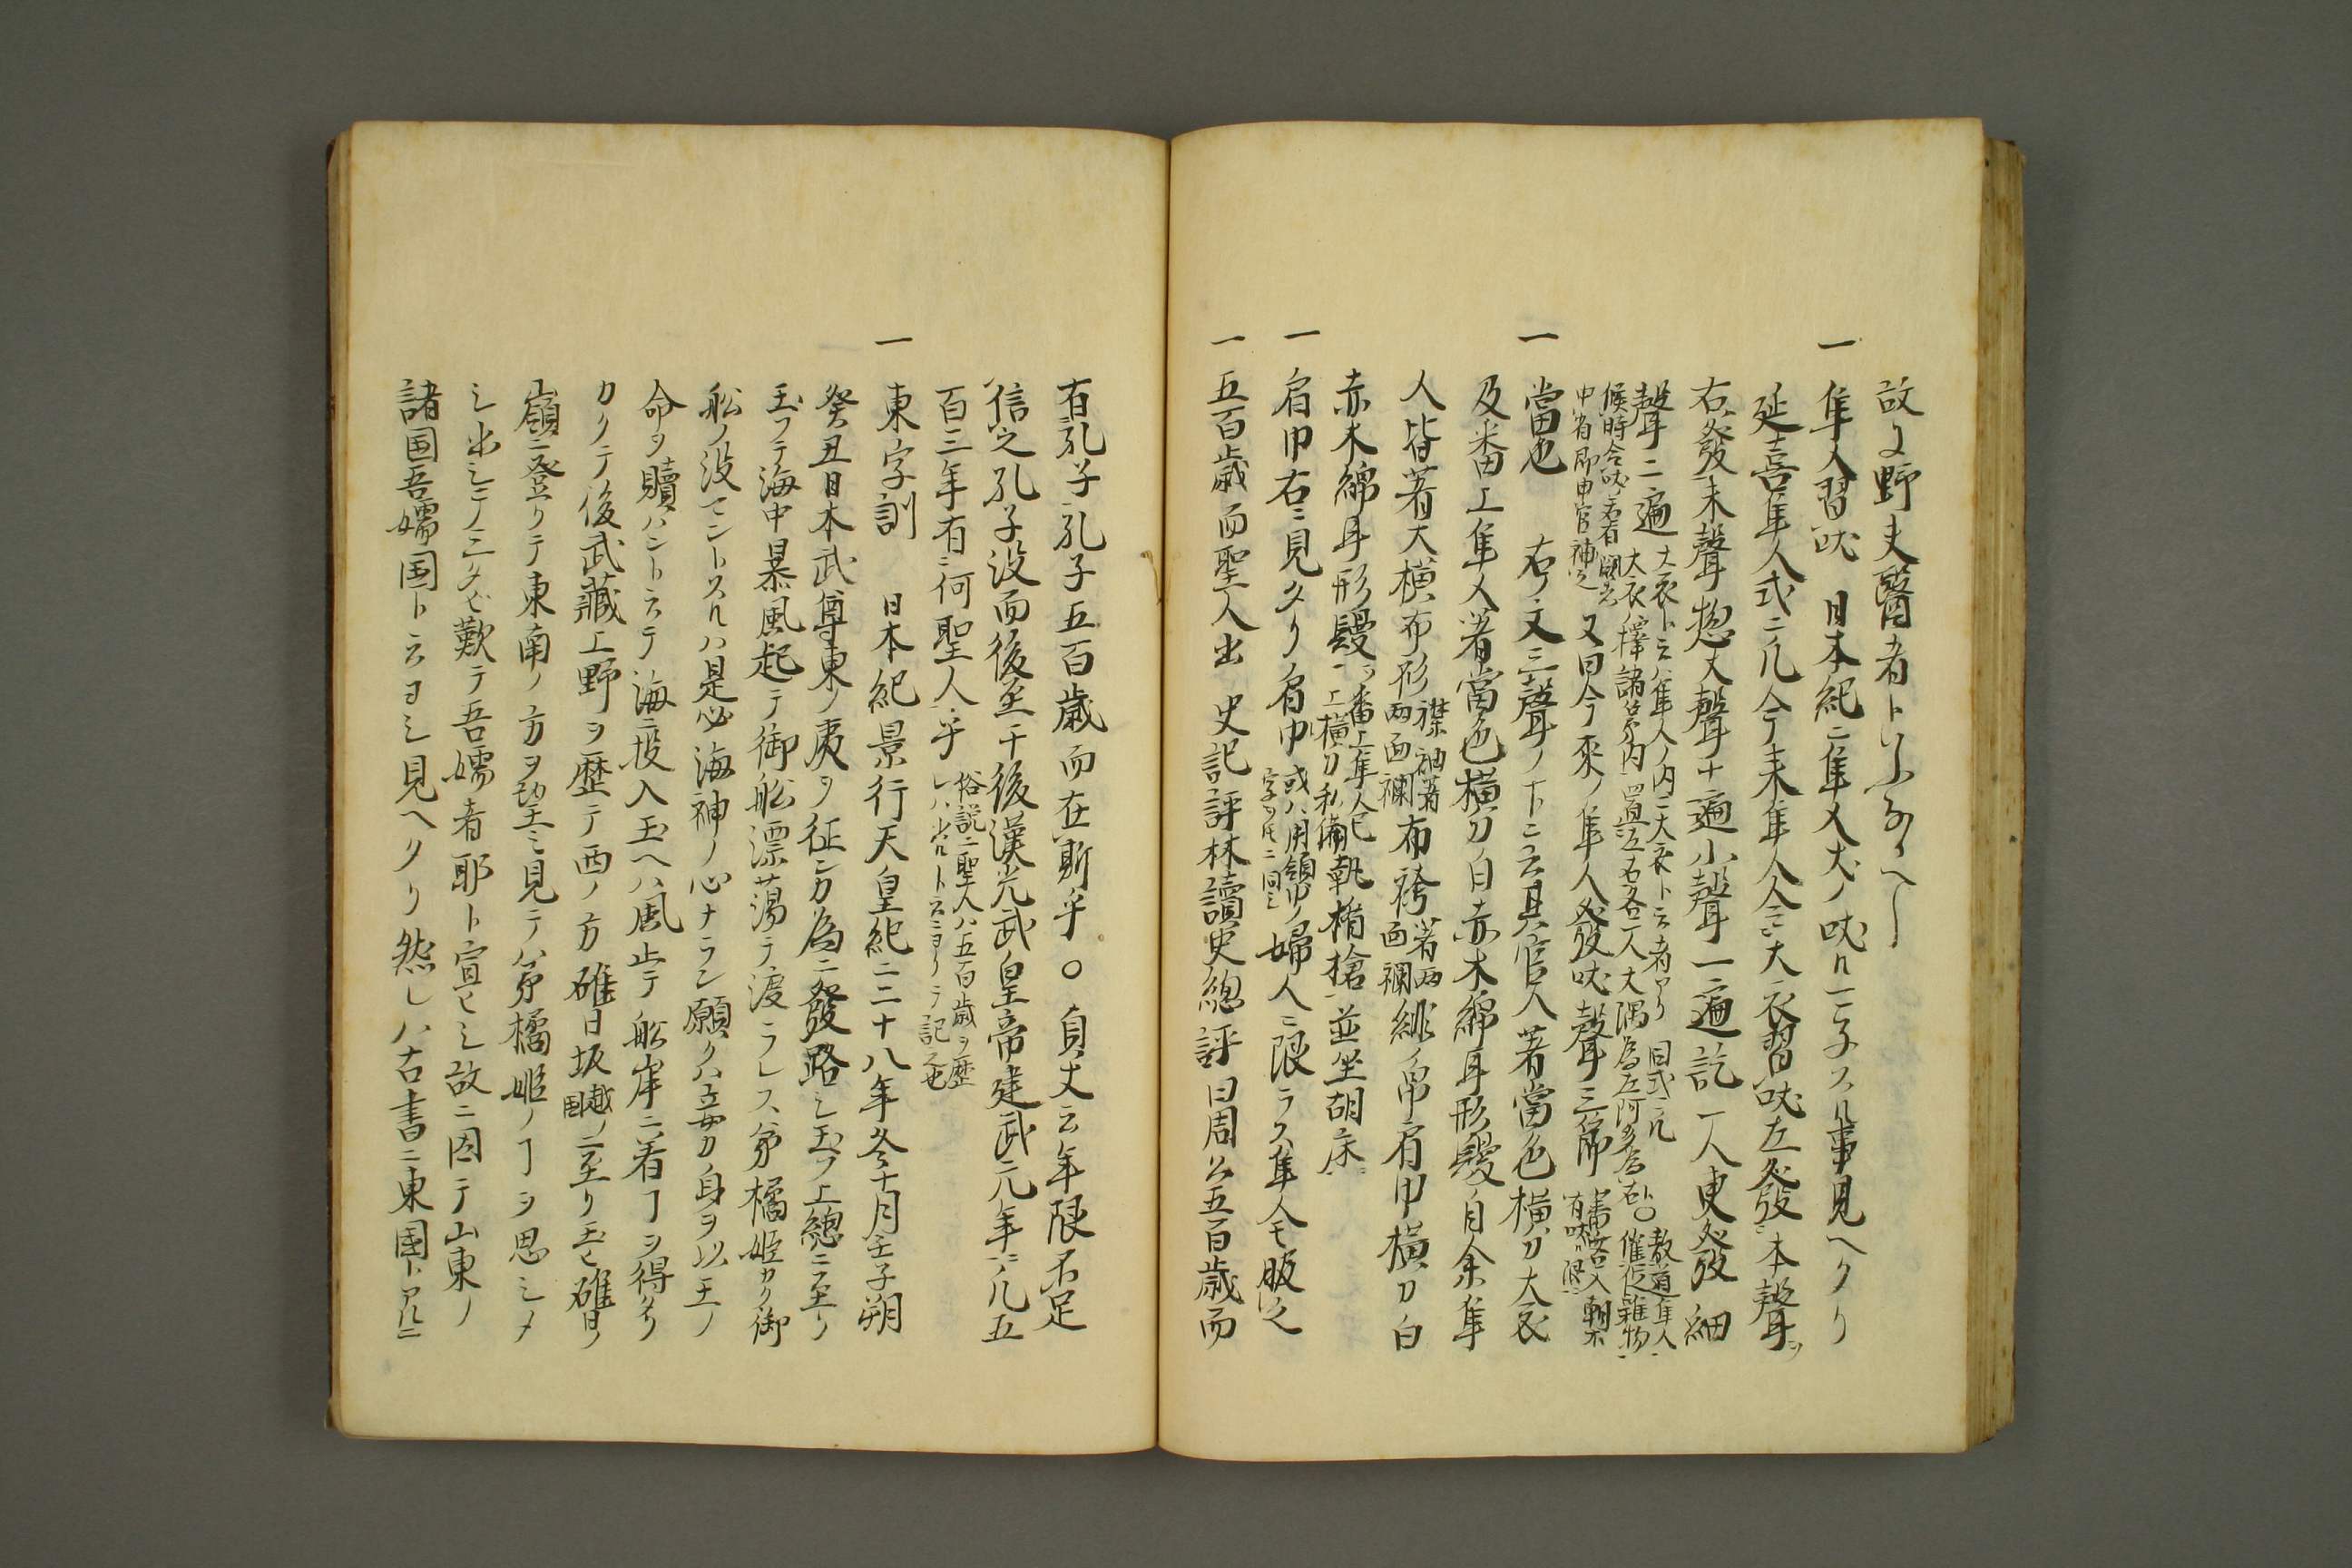 故に野夫醫者トいふなるへし
一 隼人習吠 日本紀ニ隼人犬ノ吠ルマ子スル事見ヘタリ
延喜隼人式ニ凡今来隼人令ニ大衣習吠左發ニ本聲ヲ
右發末聲惣大聲十遍小聲一遍訖一人更發細
聲二遍 大衣ト云ハ隼人ノ内ニ大衣ト云者アリ 同式ニ凡
大衣ハ擇譜第内置左右各一人大隅為左阿多為右○教導隼人
催促雜物
候時令吠若有闕者
申省即申官補之 又曰今来ノ隼人發吠聲三節 蕃客入朝不
有吠ル限
一 當色 右ノ文三聲ノ下ニ云其官人著當色橫刀大衣
及番上隼人著當色橫刀白赤木綿耳形鬘自余隼
人皆著大横布衫 襟袖著
両面襴 布袴 著両
面襴 緋帛肩巾橫刀白
赤木綿耳形鬘 番上隼人已
上橫刀私備 執楯槍並坐胡床
一 肩巾右ニ見タリ肩巾 或ハ用領巾ノ
字ヲ 同シ 婦人ニ限ラス隼人モ服之
一 五百歳而聖人出 史記評林讀史總評曰周公五百歳而
有孔子孔子五百歳而在斯乎○貞丈云年限不足
信之孔子没而後至于後漢光武皇帝建武元年ニ凡五
百三年有ニ何聖人乎 俗説ニ聖人ハ五百歳ヲ歴
レハ出ルト云ニヨリテ記之也
一 東字訓 日本紀景行天皇紀ニ二十八年冬十月壬子朔
癸丑日本武尊東ノ夷ヲ征シカ為ニ發路シ玉フ上總ニ至リ
玉フテ海中暴風起テ御船漂蕩テ渡ラレス弟橘姫カク御
船ノ没マントスルハ是必海神ノ心ナラン願クハ妾カ身ヲ以王ノ
命ヲ贖ハントステ海ニ投入玉ヘハ風止テ船岸ニ着コヲ得タリ
カクテ後武藏上野ヲ歴テ西ノ方碓日坂ニ至リ玉ヒ碓日ノ
嶺ニ登リテ東南ノ方ヲ望ミ見テハ弟橘姫ノコヲ思シメ
シ出シ三タビ歎テ吾嬬者耶ト宣ヒシ故ニ因テ山東ノ
諸国吾嬬国ト云ヨシ見ヘタリ然レハ古書ニ東國トアルニ